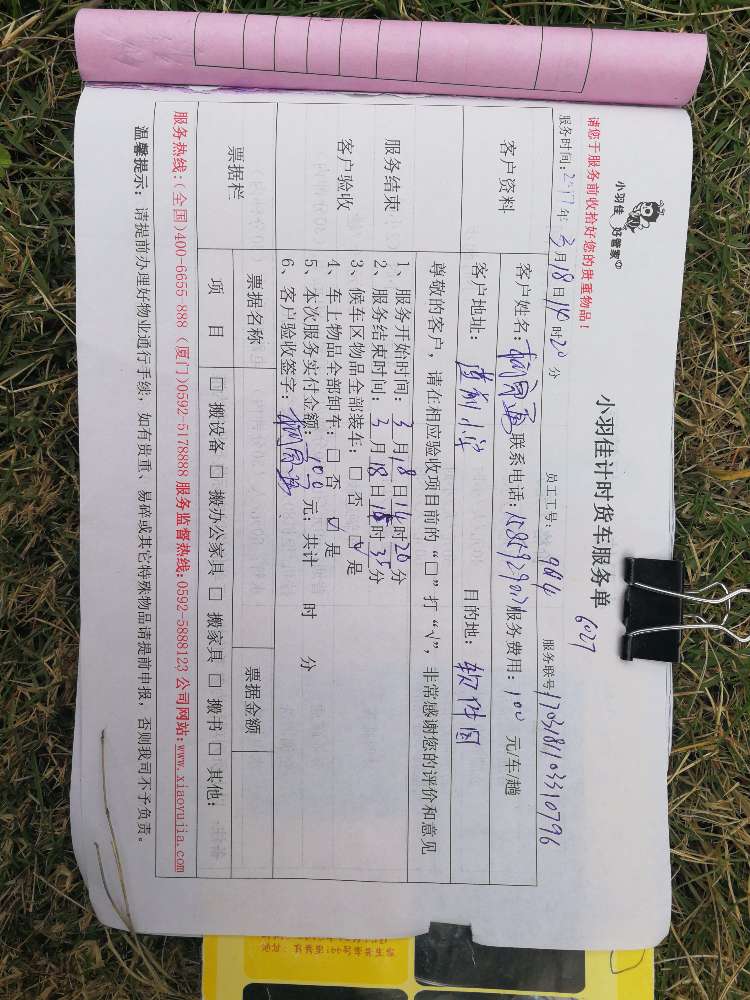 小羽佳 好管家
小羽佳计时货车服务单
6027
请您于服务前收拾好您的贵重物品！
员工工号: 994 服务联号 1703181103310796
服务时间: 2017年 3月18日14时20分
客户资料
客户姓名: 联系电话: 服务费用: 100 元/车/趟
客户地址: 莲前小学 目的地: 软件园
尊敬的客户，请在相应验收项目前的“□”打“√”，非常感谢您的评价和意见
服务结束
客户验收
1、服务开始时间: 3月18日14时20分
2、服务结束时间: 3月18日15时35分
3、候车区物品全部装车: □ 否 ☑ 是
4、车上物品全部卸车: □ 否 ☑ 是
5、本次服务实付金额: 100 元; 共计 时 分
6、客户验收签字:
票据栏
票据名称 票据金额
项 目 □ 搬设备 □ 搬办公家具 □ 搬家具 □ 搬书 □ 其他:
服务热线:(全国)400-6655 888 (厦门)0592-5178888 服务监督热线:0592-5888123 公司网站:www.xiaoyujia.com
温馨提示: 请提前办理好物业通行手续，如有贵重、易碎或其它特殊物品请提前申报，否则我司不予负责。